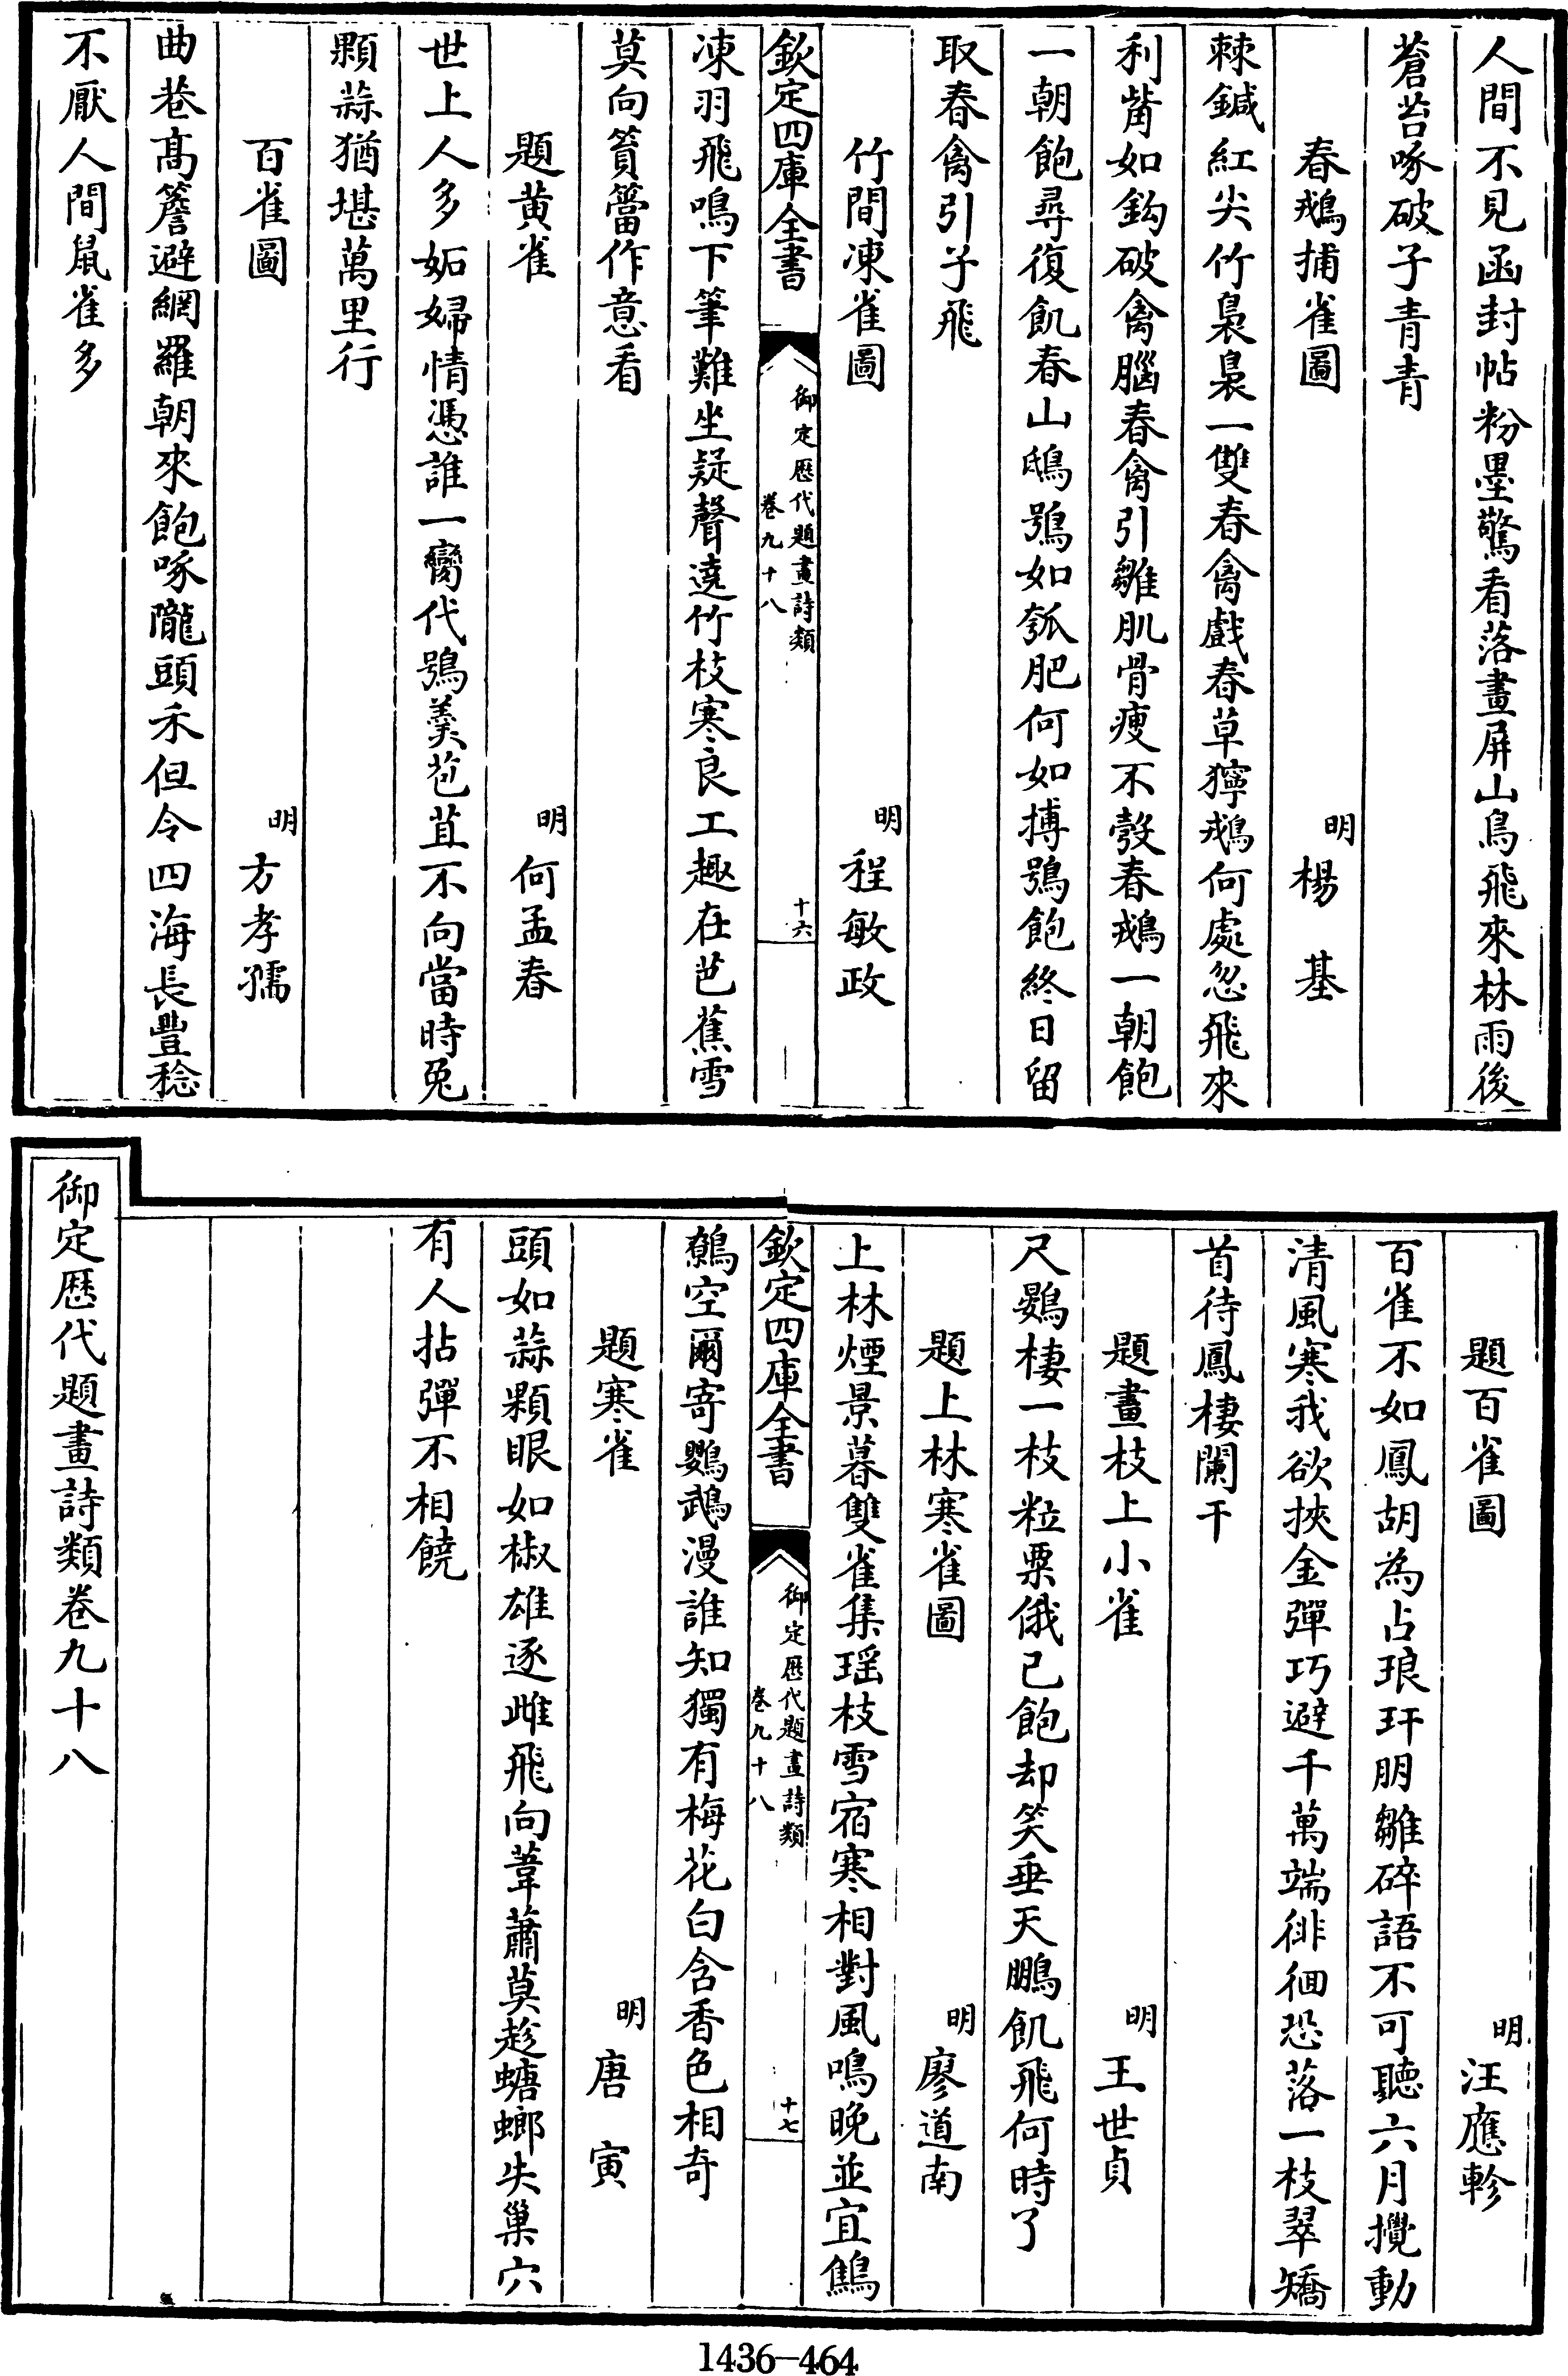 人間不見函封帖粉墨驚看落畫屏山鳥飛來林雨後
蒼苔啄破子青青
春鵝捕雀圖
明
楊基
棘鍼紅尖竹裊裊一雙春禽戲春草獰鵝何處忽飛來
利觜如鈎破禽腦春禽引雛肌骨瘦不彀春鵝一朝飽
一朝飽尋復飢春山鴟鴞如瓠肥何如搏鴞飽終日留
取春禽引子飛
竹間凍雀圖
明
程敏政
欽定四庫全書
御定歷代題畫詩類
卷九十八
十六
凍羽飛鳴下筆難坐疑聲遶竹枝寒良工趣在芭蕉雪
莫向篔簹作意看
題黄雀
明
何孟春
世上人多妬婦情憑誰一臠代鴞羮苞苴不向當時兔
顆蒜猶堪萬里行
百雀圖
明
方孝孺
曲巷髙簷避網羅朝來飽啄隴頭禾但令四海長豐稔
不厭人間鼠雀多
題百雀圖
明
汪應軫
百雀不如鳳胡為占琅玕朋雛碎語不可聽六月攪動
清風寒我欲挾金彈巧避千萬端徘徊恐落一枝翠矯
首待鳳棲闌干
題畫枝上小雀
明
王世貞
尺鷃棲一枝粒粟俄已飽却笑垂天鵬飢飛何時了
題上林寒雀圖
明
廖道南
上林煙景暮雙雀集瑶枝雪宿寒相對風鳴晚並宜鷦
欽定四庫全書
御定歷代題畫詩類
卷九十八
十七
鷯空爾寄鸚鵡漫誰知獨有梅花白含香色相奇
題寒雀
明
唐寅
頭如蒜顆眼如椒雄逐雌飛向葦蕭莫趁螗螂失巢穴
有人拈彈不相饒
御定歷代題畫詩類卷九十八
1436-464